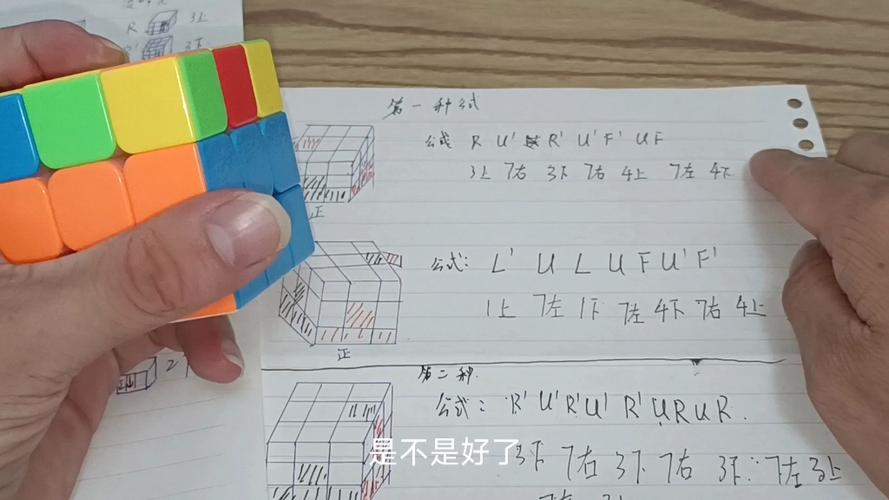 R 3上
3下
第一种公式
公式 R U' R' U' F' U F
3上 7右 3下 7右 4上 7左 4下
正
公式: L' U L U F U' F'
1上 7左 1下 7左 4下 7右 4上
正
第二种.
公式: R' U' R' U' R' U R U R.
3下 7右 3下 7右 3下 7左 3上
是不是好了